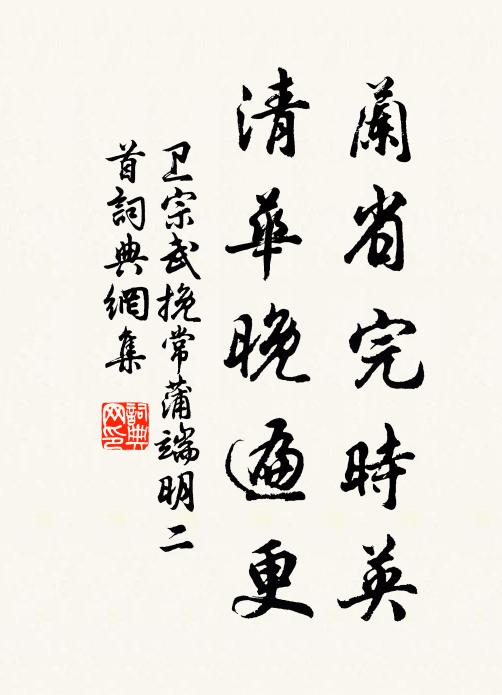 蘭省完時英
清華晚遍更
卫宗武挽常蒲端明二
首詞典網集
詞典
网印